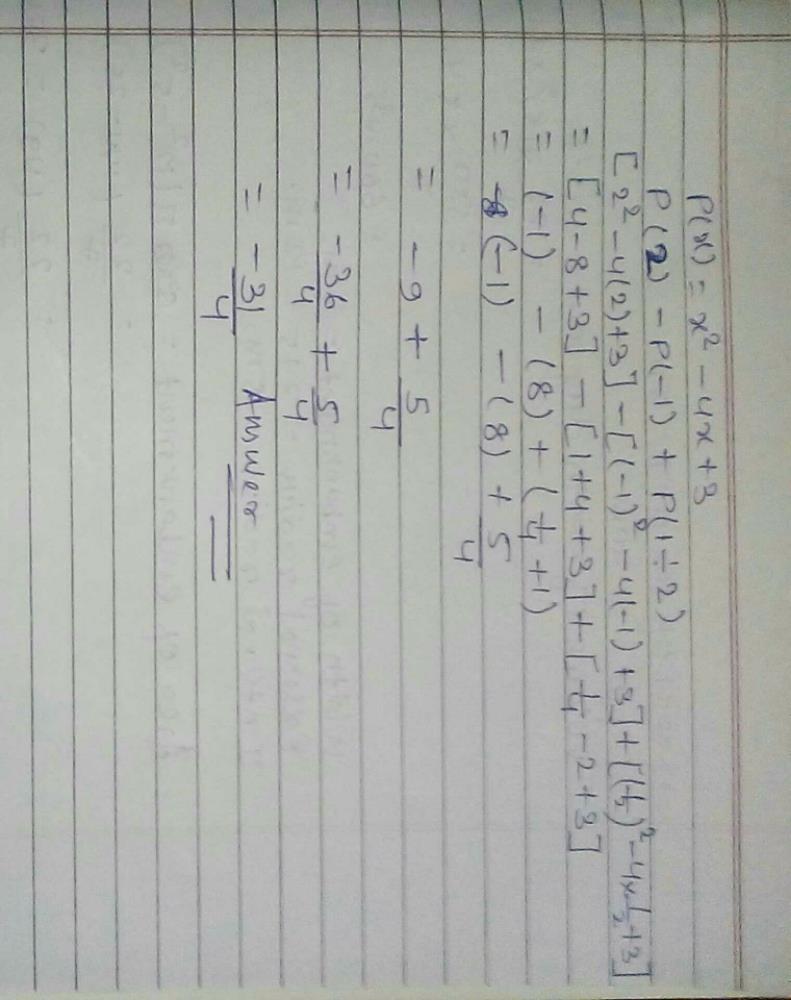 P(x) = x² - 4x + 3
P(2) - P(-1) + P(1÷2)
[2² - 4(2) + 3] - [(-1)² - 4(-1) + 3] + [(1/2)² - 4×1/2 + 3]
= [4 - 8 + 3] - [1 + 4 + 3] + [1/4 - 2 + 3]
= (-1) - (8) + (1/4 + 1)
= (-1) - (8) + 5/4
= -9 + 5/4
= -36/4 + 5/4
= -31/4 Answer